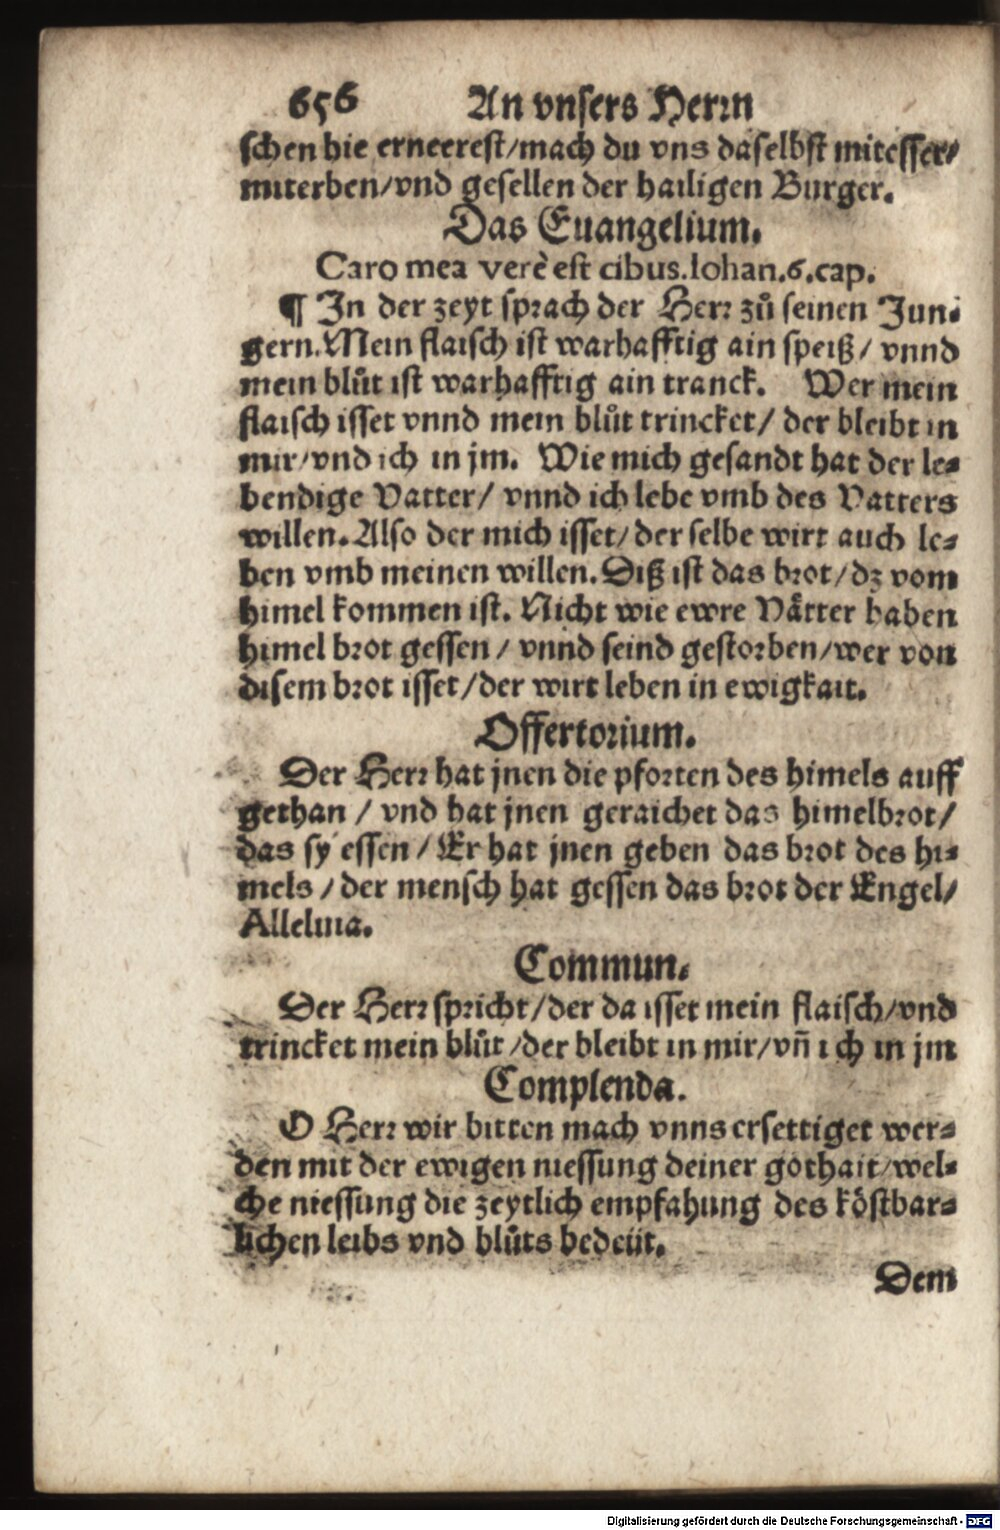 656 An vnsers Herrn
schen hie erneerest/mach du vns daselbst mitesser/
miterben/vnd gesellen der hailigen Burger.
Das Euangelium.
Caro mea verè est cibus. Iohan.6.cap.
¶ In der zeyt sprach der Herr zů seinen Jun⸗
gern. Mein flaisch ist warhafftig ain speiß/ vnnd
mein blůt ist warhafftig ain tranck. Wer mein
flaisch isset vnnd mein blůt trincket/ der bleibt in
mir/vnd ich in jm. Wie mich gesandt hat der le⸗
bendige Vatter/ vnnd ich lebe vmb des Vatters
willen. Also der mich isset/der selbe wirt auch le⸗
ben vmb meinen willen. Diß ist das brot/dz vom
himel kommen ist. Nicht wie ewre Våtter haben
himel brot gessen / vnnd seind gestorben/wer von
disem brot isset/der wirt leben in ewigkait.
Offertorium.
Der Herr hat jnen die pforten des himels auff
gethan / vnd hat jnen geraichet das himelbrot/
das sy essen / Er hat jnen geben das brot des hi⸗
mels / der mensch hat gessen das brot der Engel/
Alleluia.
Commun.
Der Herr spricht/der da isset mein flaisch/vnd
trincket mein blůt /der bleibt in mir/vñ ich in jm
Complenda.
O Herr wir bitten mach vnns ersettiget wer⸗
den mit der ewigen niessung deiner gothait/wel⸗
che niessung die zeytlich empfahung des köstbar⸗
lichen leibs vnd blůts bedeüt.
Dem
Digitalisierung gefördert durch die Deutsche Forschungsgemeinschaft - DFG